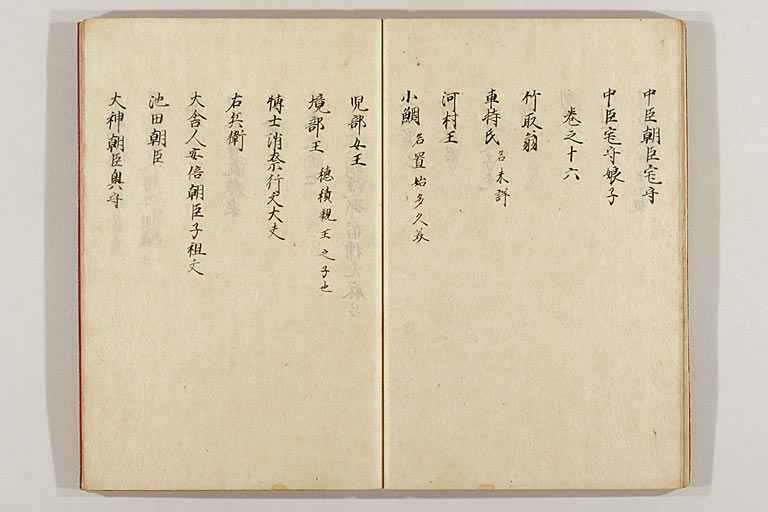 中臣朝臣宅守
中臣宅守娘子
巻之十六
竹取翁
車持氏 名未詳
河村王
小鯛 名置始多久美
児部女王
境部王 穂積親王之子也
博士消奈行文大夫
右兵衛
大舎人安倍朝臣子祖父
池田朝臣
大神朝臣奥守